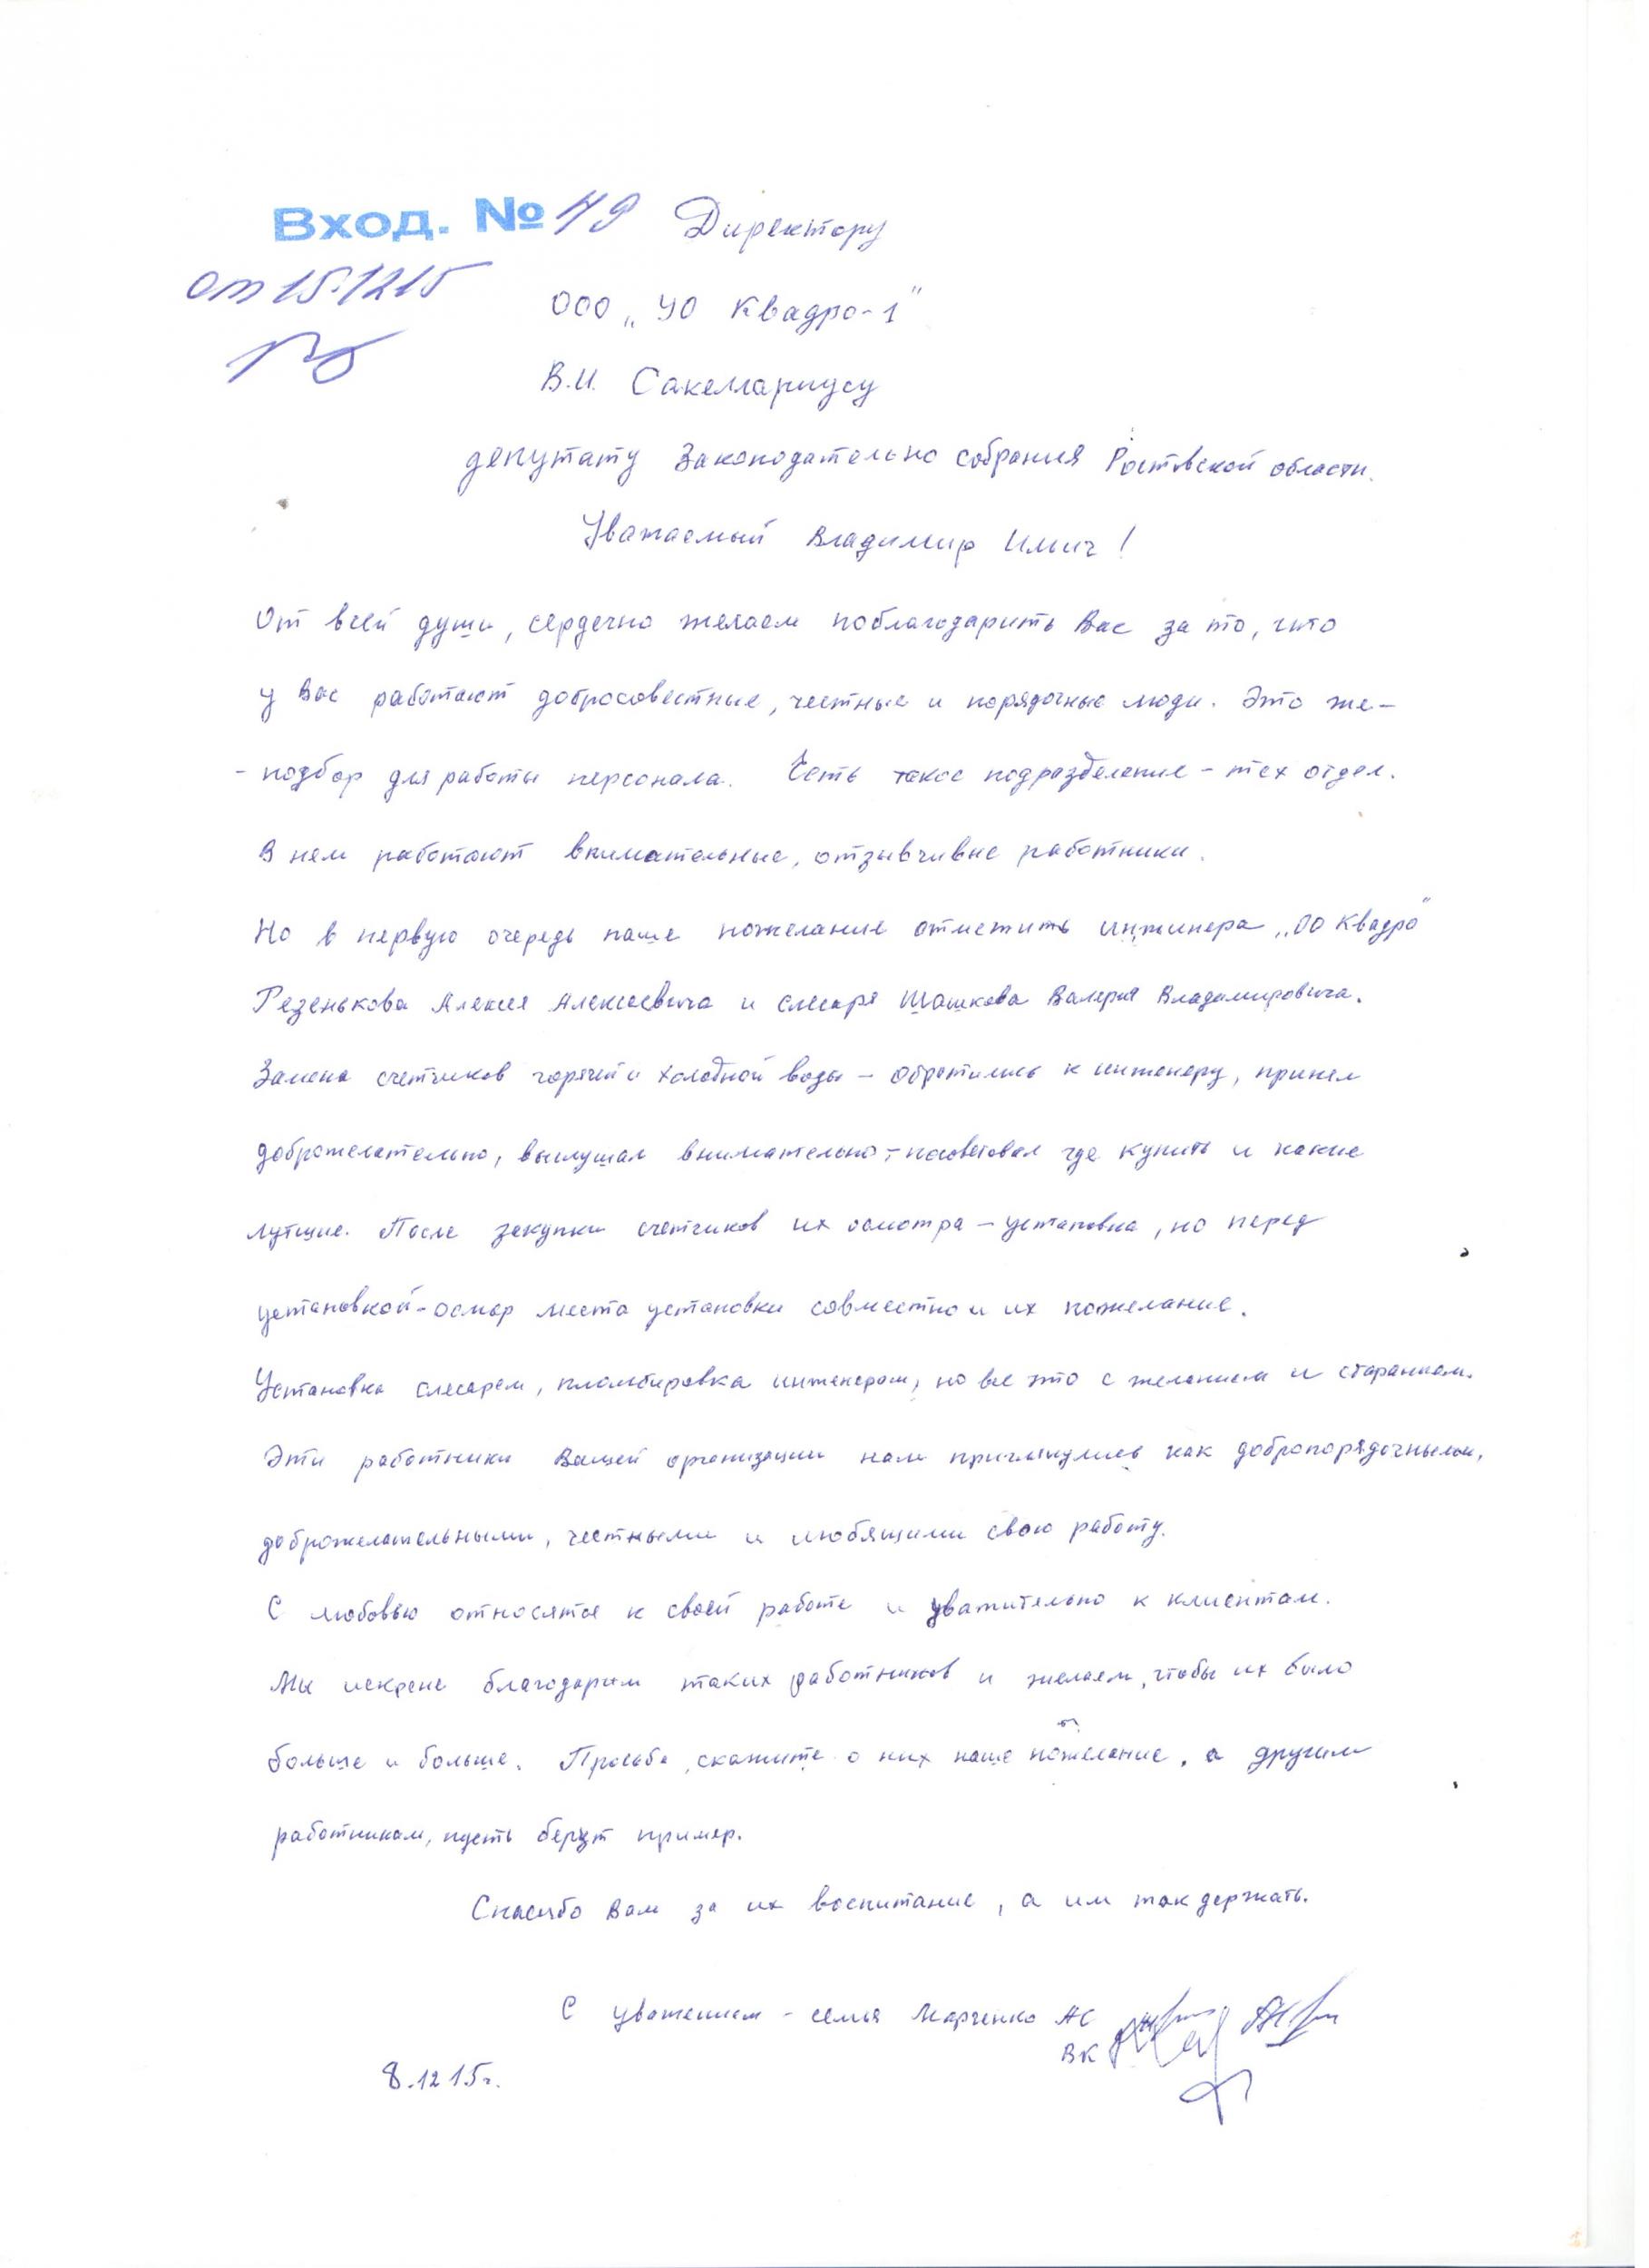 Вход. № 49 Директору
от 15.12 15
ООО „УО Квадро-1"
В.И. Сакеллариусу
депутату Законодательно собрания Ростовской области.
Уважаемый Владимир Ильич!
От всей души, сердечно желаем поблагодарить Вас за то, что
у Вас работают добросовестные, честные и порядочные люди. Это же-
- подбор для работы персонала. Есть такое подразделение - тех отдел.
В нем работают внимательные, отзывчивые работники.
Но в первую очередь наше пожелание отметить инжинера „ОО Квадро"
Резенькова Алексея Алексеевича и слесаря Шашкова Валерия Владимировича.
Замена счетчиков горячей и холодной воды - обратились к инженеру, принял
доброжелательно, выслушал внимательно - посоветовал где купить и какие
лутшие. После закупки счетчиков их осмотра - установка, но перед
установкой - осмор места установки совместно и их пожелание.
Установка слесарем, пломбировка инженером, но все это с желанием и старанием.
Эти работники Вашей организации нам приглянулись как добропорядочными,
доброжелательными, честными и любящими свою работу.
С любовью относятся к своей работе и уважительно к клиентам.
Мы искрене благодарим таких работников и желаем, чтобы их было
больше и больше. Просьба, скажите о них наше пожелание, а другим
работникам, пусть берут пример.
Спасибо Вам за их воспитание, а им так держать.
С уважением - семья Марченко АС
ВК
8.12 15г.